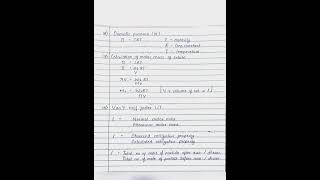 Osmotic pressure (π)
π = CRT
C = molarity
R = Gas constant
T = temperature
Calculation of molar mass of solute
π = CRT
π = n₂RT
V
πV = w₂RT
M₂
M₂ = w₂RT
πV
[V = volume of sol. in L]
Van't Hoff factor (i)
i = Normal molar mass
Abnormal molar mass
i = Observed colligative property
Calculated colligative property
i = Total no. of moles of particle after asso / disso
Total no. of mole of particle before asso / disso